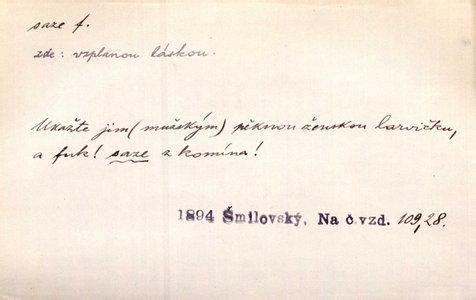 saze f.
zde: vzplanou láskou.
Ukažte jim (mužským) pěknou ženskou larvičku,
a fuk! saze z komína!
1894 Šmilovský, Na č.vzd. 109,28.